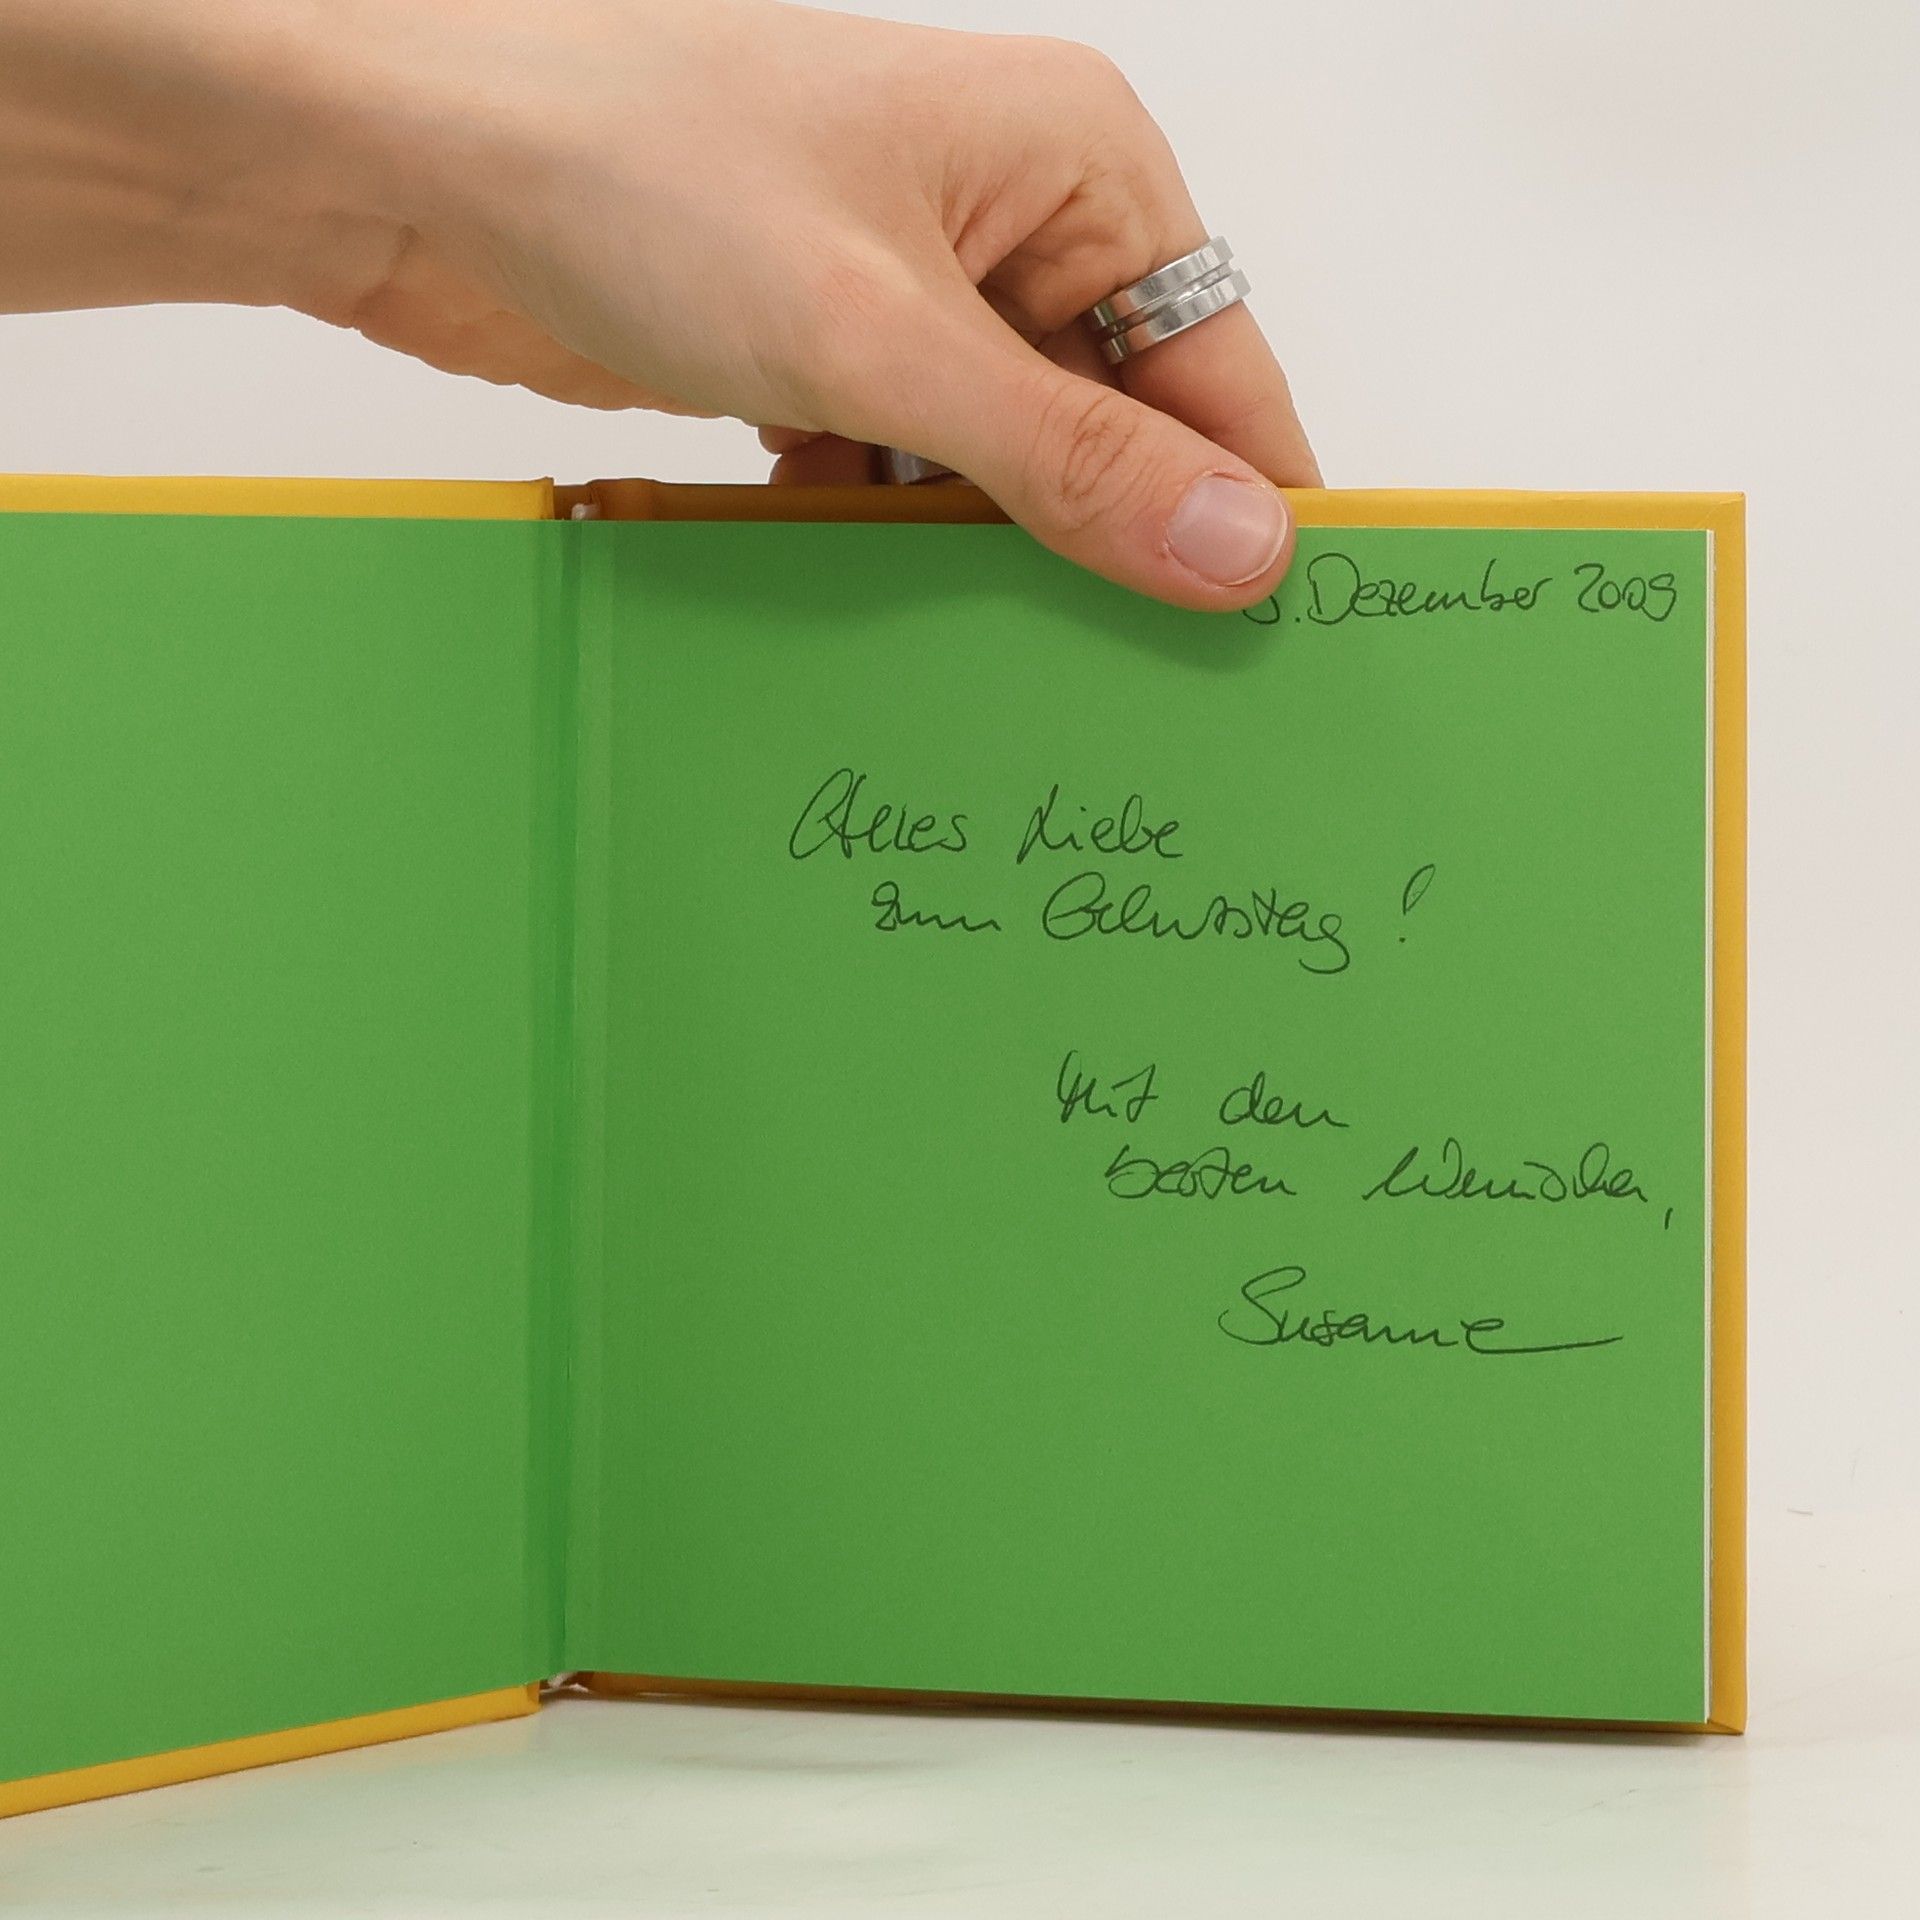 . Dezember 2009
Alles Liebe
zum Geburtstag!
Mit den
besten Wünschen,
Susanne